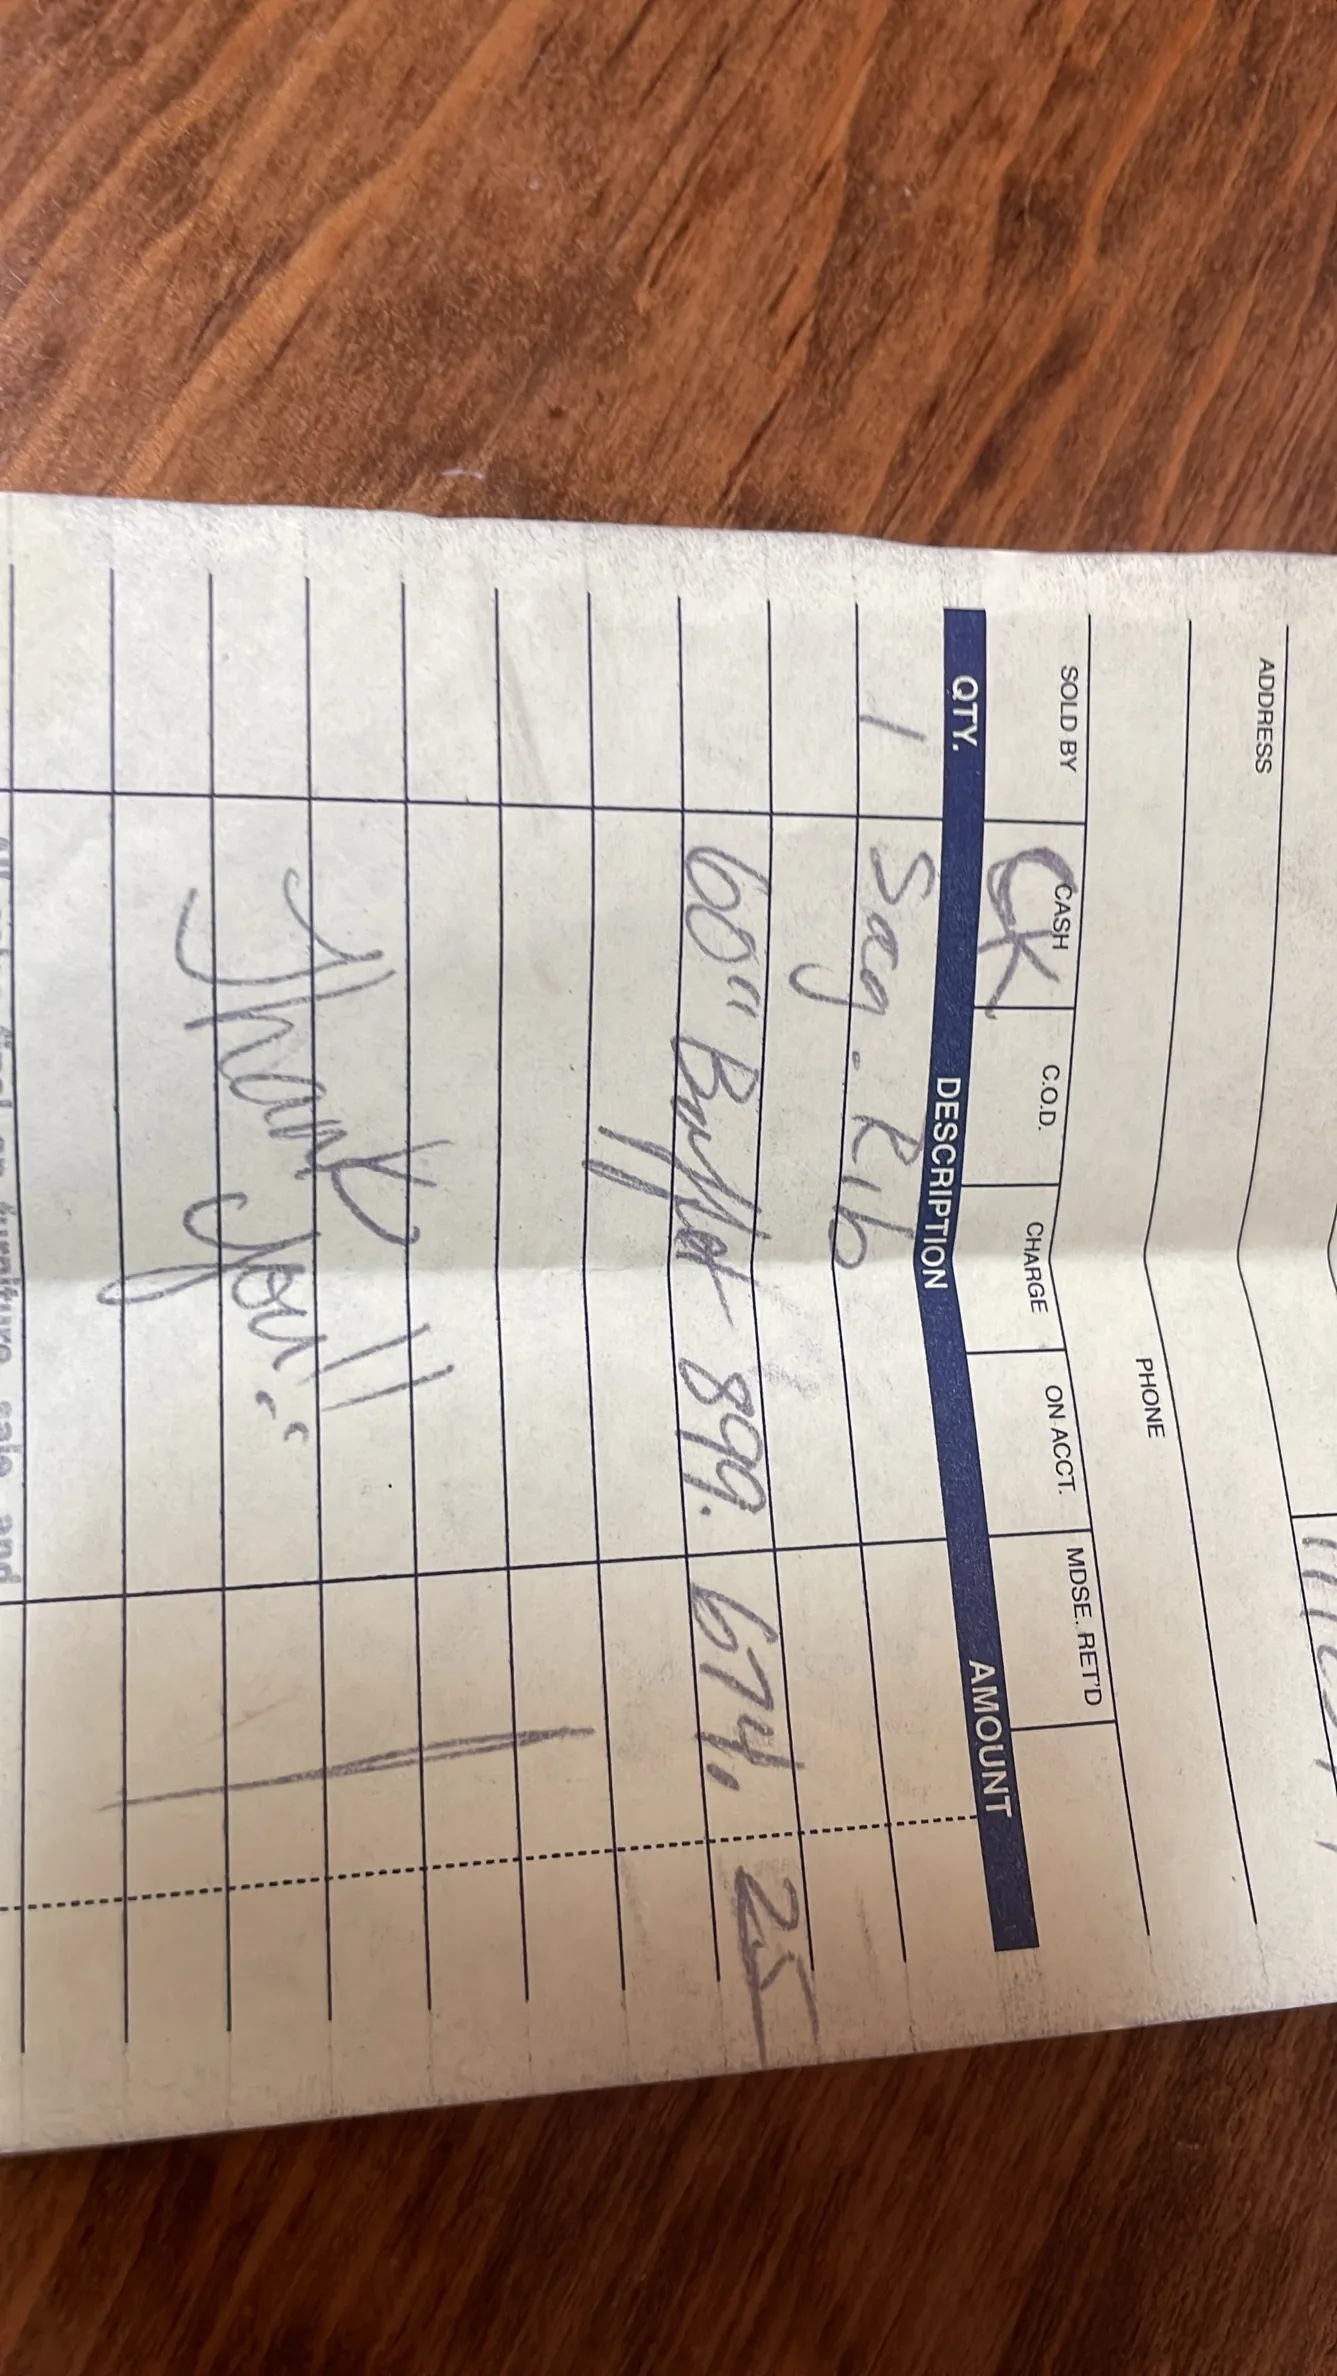 ADDRESS
PHONE
SOLD BY CASH C.O.D. CHARGE ON ACCT. MDSE. RET'D
CK
QTY. DESCRIPTION AMOUNT
1 Sag. Rib
60" Buffet 899. 674. 25
Thank
you!!
furniture sale and